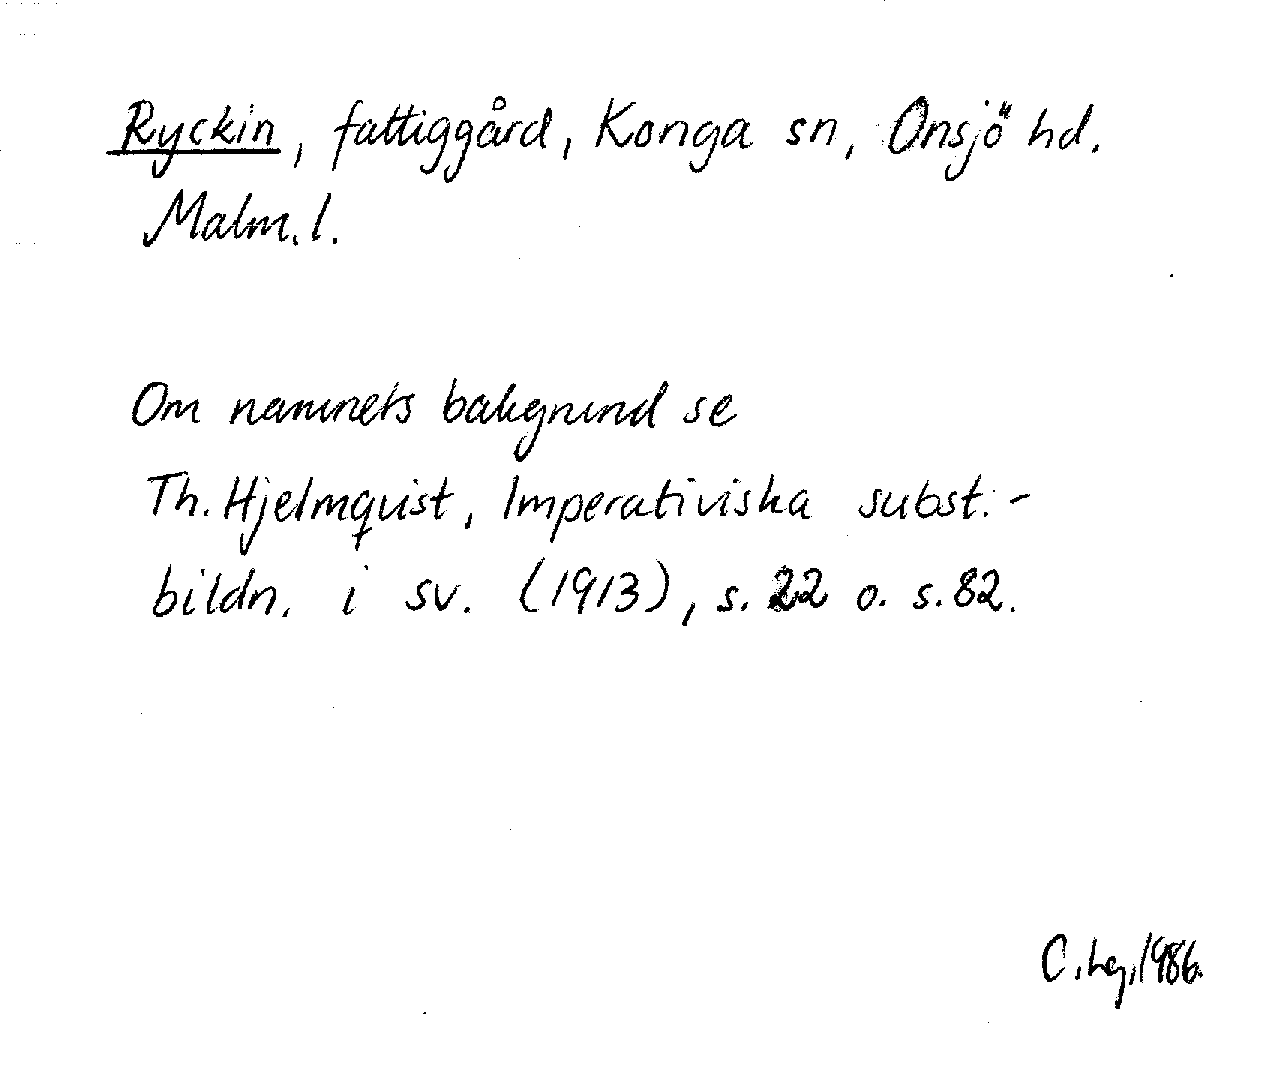 Ryckin, fattiggård, Konga sn, Onsjö hd.
Malm. l.
Om namnets bakgrund se
Th. Hjelmquist, Imperativiska subst.-
bildn. i sv. (1913), s. 22 o. s. 82.
1986.